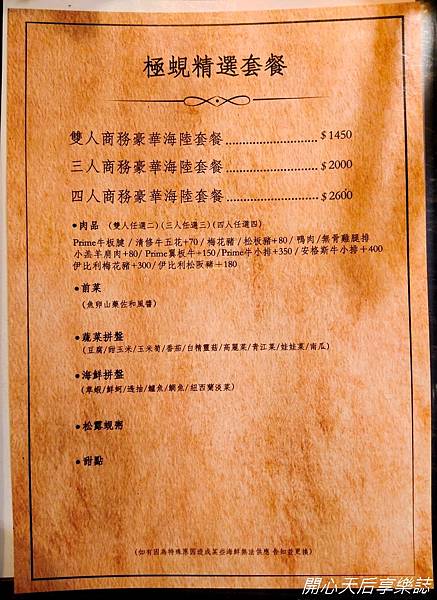 極蜆精選套餐
雙人商務豪華海陸套餐 $1450
三人商務豪華海陸套餐 $2000
四人商務豪華海陸套餐 $2600
●肉品 (雙人任選二)(三人任選三)(四人任選四)
Prime牛板腱 / 清修牛五花+70 / 梅花豬 / 松板豬+80 / 鴨肉/無骨雞腿排
小羔羊肩肉+80/ Prime翼板牛+150/Prime牛小排+350 / 安格斯牛小排+400
伊比利梅花豬+300/ 伊比利松阪豬+180
●前菜
(魚卵山藥佐和風醬)
●蔬菜拼盤
(豆腐/甜玉米/玉米筍/番茄/白精靈菇/高麗菜/青江菜/娃娃菜/南瓜)
●海鮮拼盤
(草蝦/鮮蚵/透抽/鱸魚/鯛魚/紐西蘭淡菜)
●松露蜆粥
●甜點
(如有因為特殊原因造成某些海鮮無法供應 告知並更換)
開心天后享樂誌